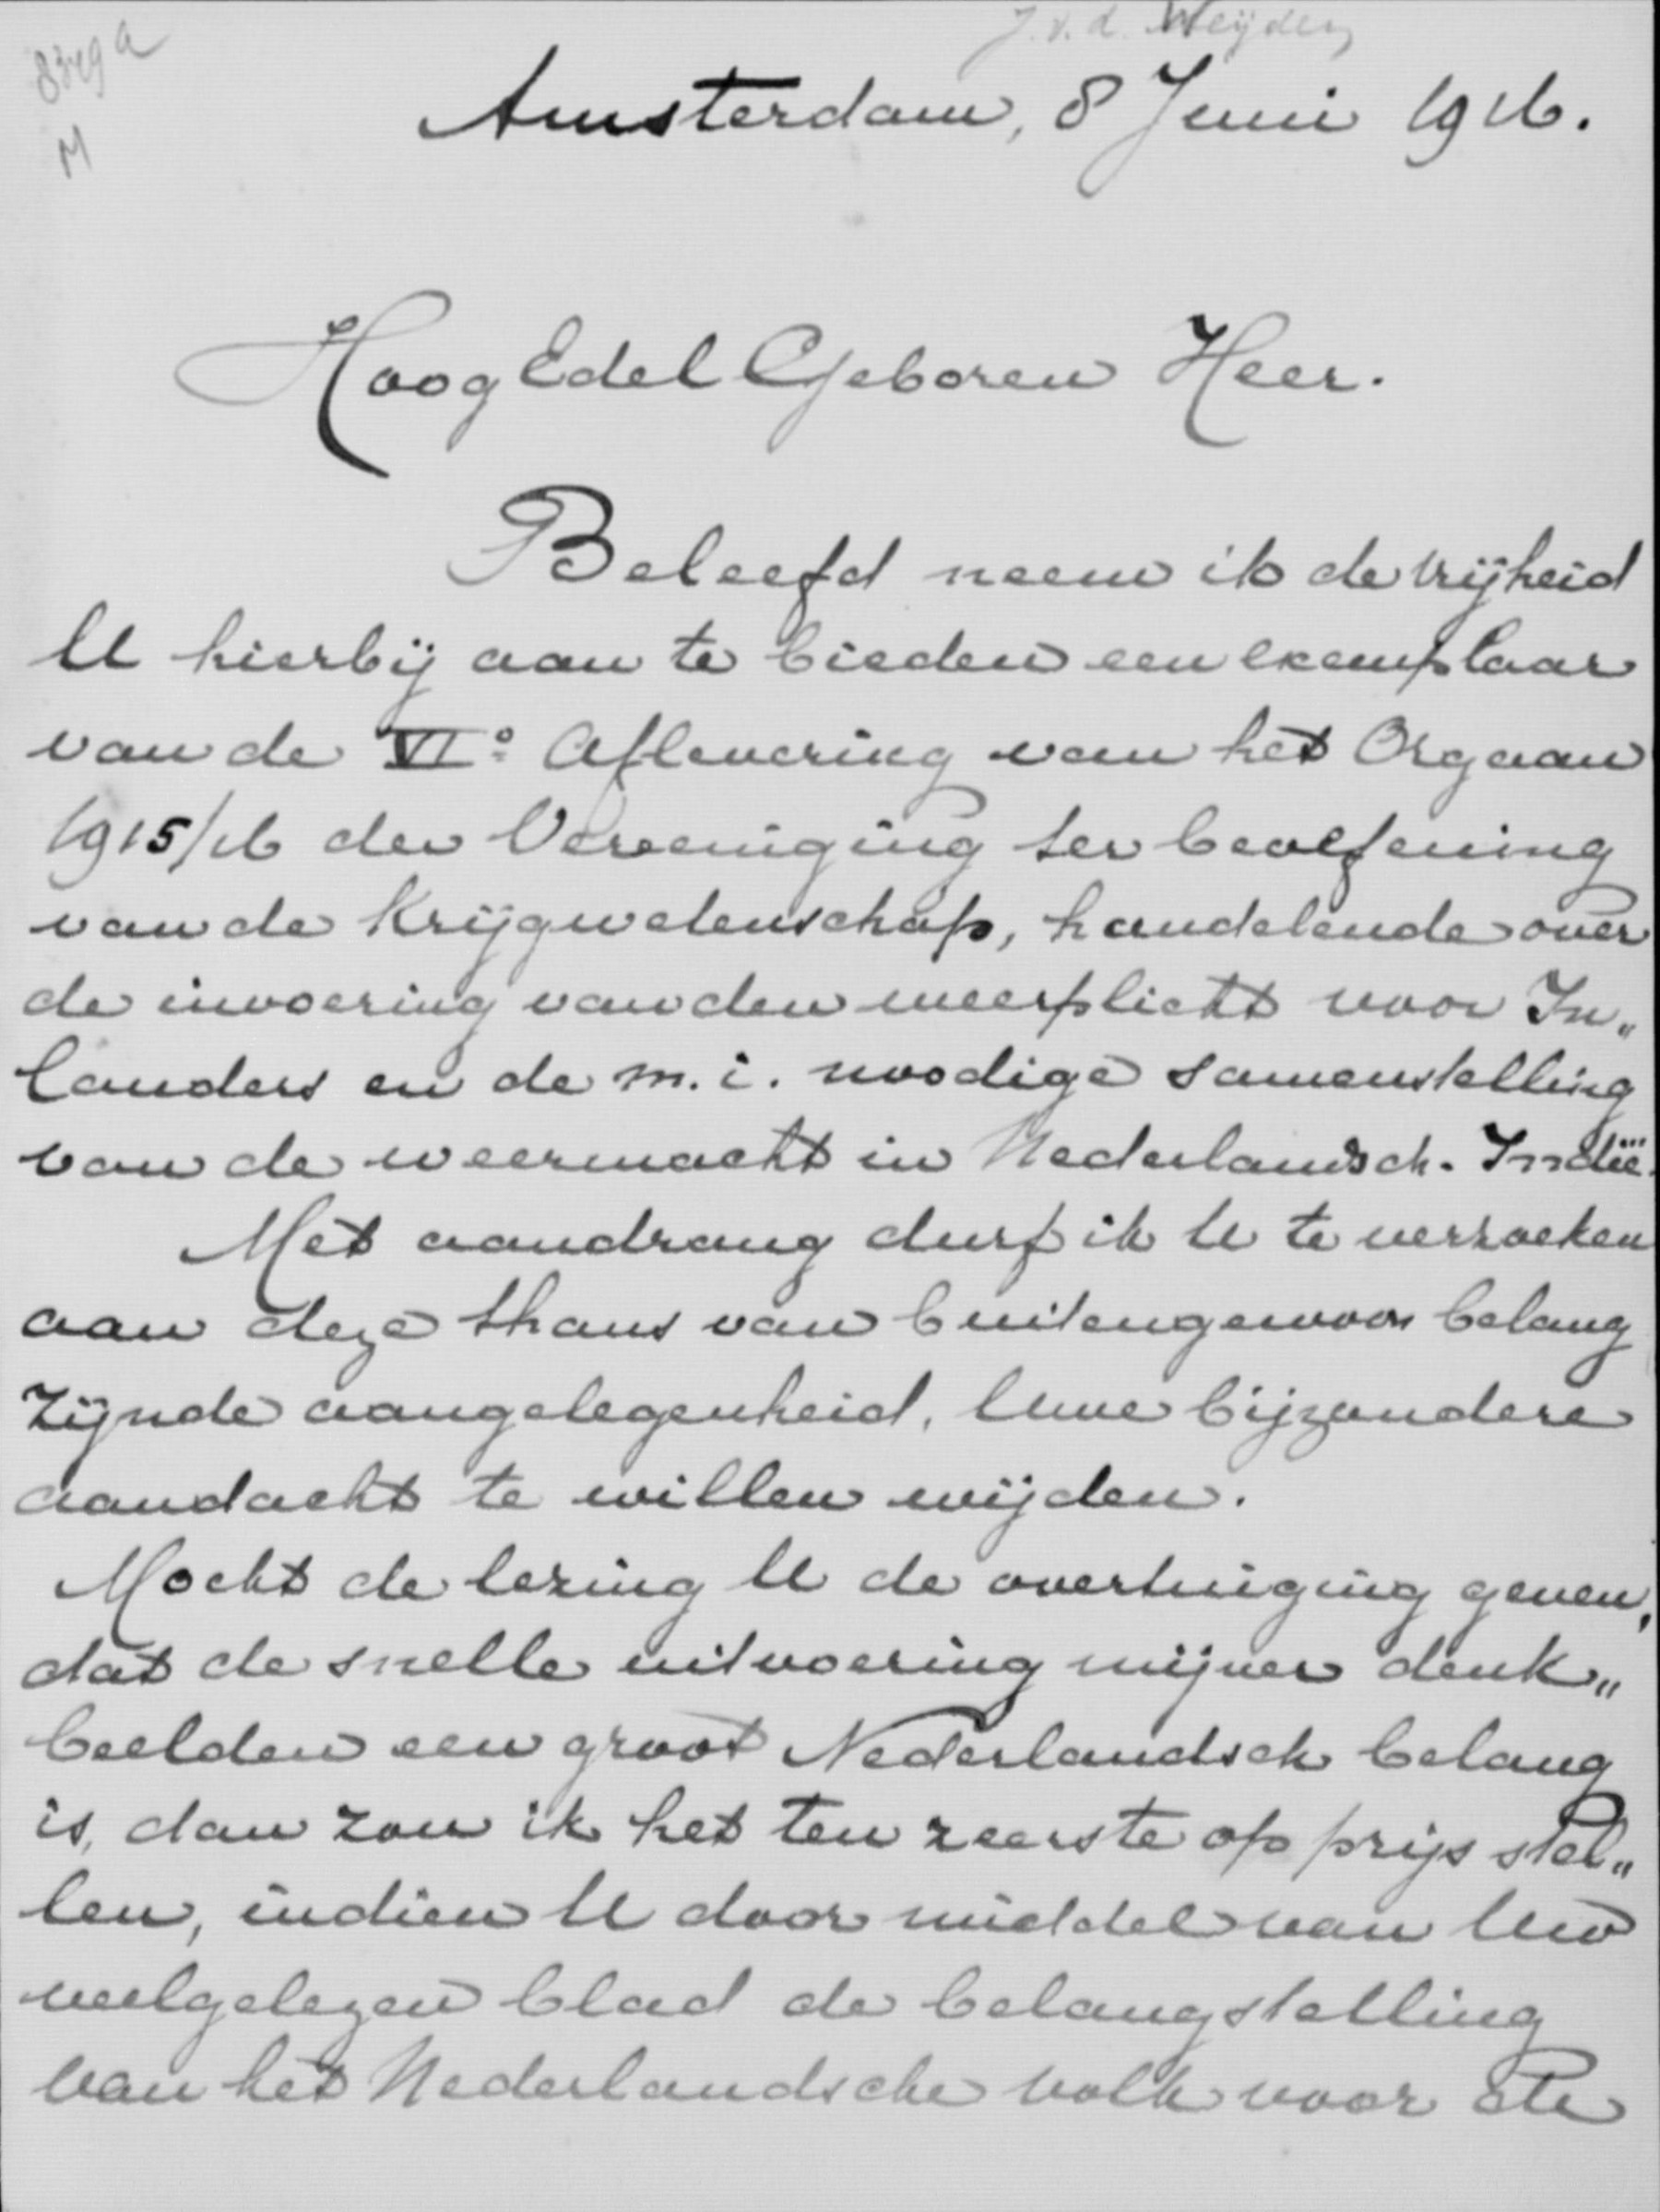 8349a
M
J. v. d. Weijden
Amsterdam, 8 Juni 1916.
HoogEdelGeboren Heer.
Beleefd neem ik de vrijheid
U hierbij aan te bieden een exemplaar
van de VIe Aflevering van het Orgaan
1915/16 der Vereeniging ter beoefening
van de Krijgwetenschap, handelende over
de invoering van den weerplicht voor In„
landers en de m.i. noodige samenstelling
van de weermacht in Nederlandsch-Indië.
Met aandrang durf ik U te verzoeken
aan deze thans van buitengewoon belang
zijnde aangelegenheid, Uwe bijzondere
aandacht te willen wijden.
Mocht de lezing U de overtuiging geven,
dat de snelle uitvoering mijner denk„
beelden een groot Nederlandsch belang
is, dan zou ik het ten zeerste op prijs stel„
len, indien U door middel van Uw
veelgelezen blad de belangstelling
van het Nederlandsche volk voor de